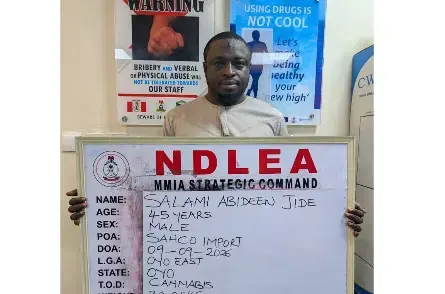 WARNING
BRIBERY AND VERBAL
OR PHYSICAL ABUSE WILL
NOT BE TOLERATED TOWARDS
OUR STAFF
USING DRUGS IS
NOT COOL
Let's
make
being
healthy
your
new high'
NDLEA
MMIA STRATEGIC COMMAND
NAME: SALAMI ABIDEEN JIDE
AGE: 45 YEARS
SEX: MALE
POA: SAHCO IMPORT
DOA: 09-09-2026
L.G.A: OYO EAST
STATE: OYO
T.O.D: CANNABIS